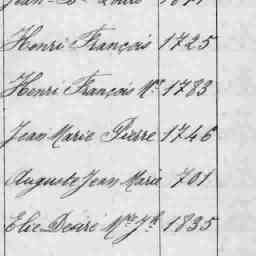 Henri François 1725
Henri François Mie 1783
Jean Marie Pierre 1746
Auguste Jean Marie 701
Elie Désiré Mie Jh 1835